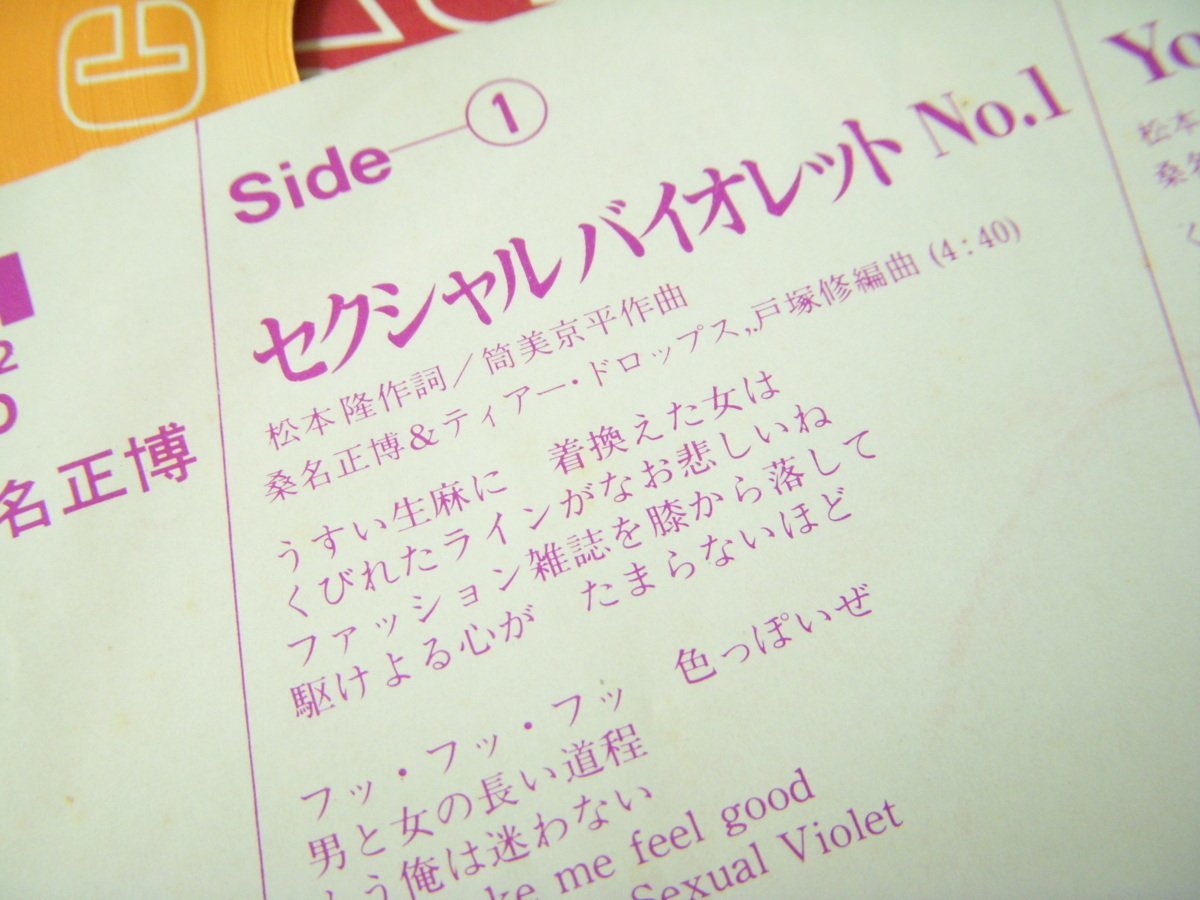 Side—①
セクシャルバイオレット No.1
松本隆作詞／筒美京平作曲
桑名正博&ティアー・ドロップス,.戸塚修編曲 (4:40)
うすい生麻に　着換えた女は
くびれたラインがなお悲しいね
ファッション雑誌を膝から落して
駆けよる心が　たまらないほど
フッ・フッ・フッ　色っぽいぜ
男と女の長い道程
う俺は迷わない
me feel good
Sexual Violet
名正博
2
Yo
松本
桑名
く